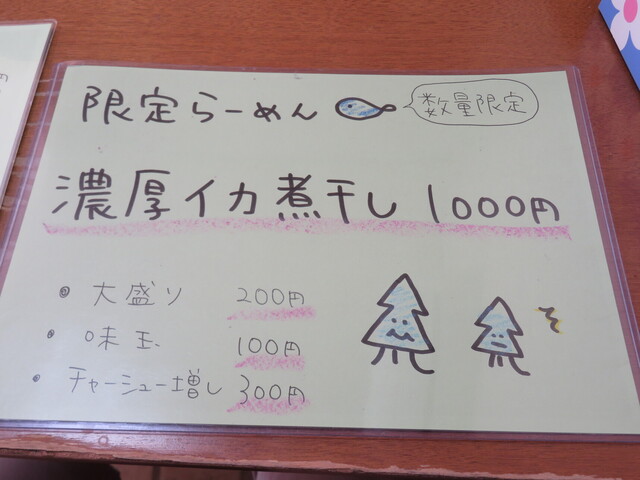 限定らーめん
数量限定
濃厚イカ煮干し 1000円
大盛り 200円
味玉 100円
チャーシュー増し 300円